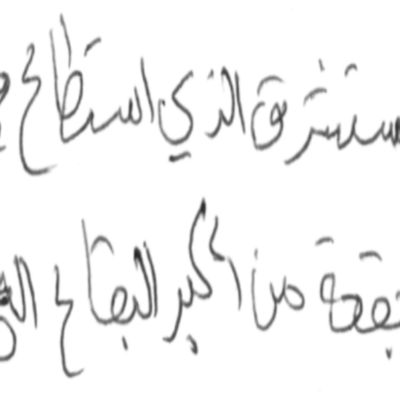 مستشرق الذي استطاع
بقعة من أكبر البقاع التي